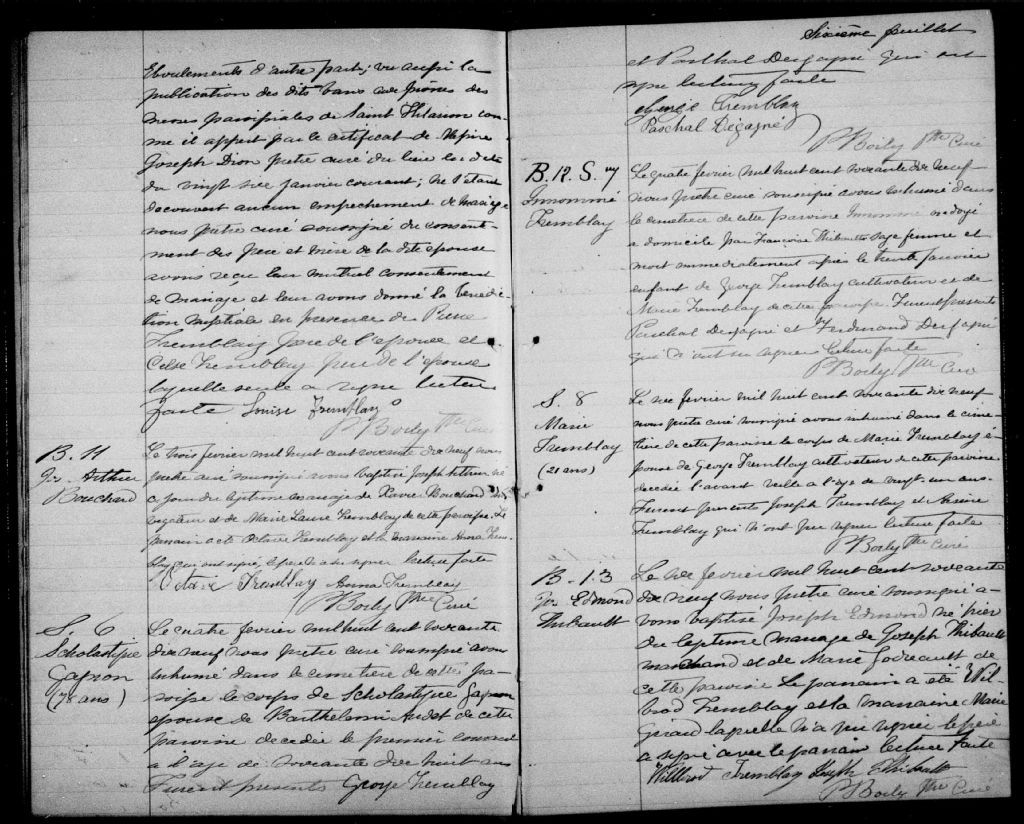 Eboulements d'autre part; vu aussi la
publication des dits bans aux prônes des
messes paroissiales de Saint Hilarion com-
me il appert par le certificat de Mesire
Joseph Dion prêtre curé du lieu en date
du vingt six janvier courant; ne s'étant
découvert aucun empechement de mariage
nous prêtre curé soussigné du consente-
ment des père et mère de la dite epouse
avons reçu leur mutuel consentement
de mariage et leur avons donné la bénédic-
tion nuptiale en presence de
Tremblay père de l'epoux et
Celse Tremblay père de l'epouse
laquelle seule a signé lecture
faite Louise Tremblay
P Boily Ptre Curé
B. 11
Js. Arthur
Bouchard
Le trois fevrier mil huit cent soixante dix neuf nous
prêtre curé soussigné avons baptisé Joseph Arthur né
ce jour du légitime mariage de Xavier Bouchard
et de Marie Laure Tremblay de cette paroisse. Le
parrain a été Octave Tremblay et la marraine Anna Trem-
blay qui ont signé, lecture faite
Octave Tremblay Anna Tremblay
P Boily Ptre Curé
S. 6
Scholastique
Gagnon
(78 ans)
Le quatre fevrier mil huit cent soixante
dix neuf nous prêtre curé soussigné avons
inhumé dans le cimetiere de cette pa-
roisse le corps de Scholastique Gagnon
epouse de Barthelemi Audet de cette
paroisse decedée le premier courant
a l'age de soixante dix huit ans
Furent presents George Tremblay
Sixième feuillet
et Paschal Desgagné qui ont
signé lecture faite
George Tremblay
Paschal Dégagné
P Boily Ptre Curé
B. 12. S. 7
Innommé
Tremblay
Le quatre fevrier mil huit cent soixante dix neuf
nous prêtre curé soussigné avons inhumé dans
le cimetiere de cette paroisse Innommé ondoyé
a domicile par Françoise Thibeault sage femme et
mort immediatement après le trente janvier
enfant de George Tremblay cultivateur et de
Marie Tremblay de cette paroisse. Furent presents
Paschal Desgagné et Ferdinand Desgagné
qui n'ont su signer lecture faite
P Boily Ptre Curé
S. 8
Marie
Tremblay
(21 ans)
Le fevrier mil huit cent soixante dix neuf
nous prêtre curé soussigné avons inhumé dans le cime-
tière de cette paroisse le corps de Marie Tremblay é-
pouse de George Tremblay cultivateur de cette paroisse
decedée l'avant veille a l'age de vingt un ans.
Furent presents Joseph Tremblay et
Tremblay qui n'ont pu signer lecture faite
P Boily Ptre Curé
B - 13
Js. Edmond
Thibeault
Le fevrier mil huit cent soixante
dix neuf nous prêtre curé soussigné a-
vons baptisé Joseph Edmond né hier
du légitime mariage de Joseph Thibeault
marchand et de Marie Godreault de
cette paroisse Le parrain a été Wil-
brod Tremblay et la marraine Marie
Girard laquelle n'a pu signer le père
a signé avec le parrain lecture faite
Wilbrod Tremblay Joseph Thibeault
P Boily Ptre Curé